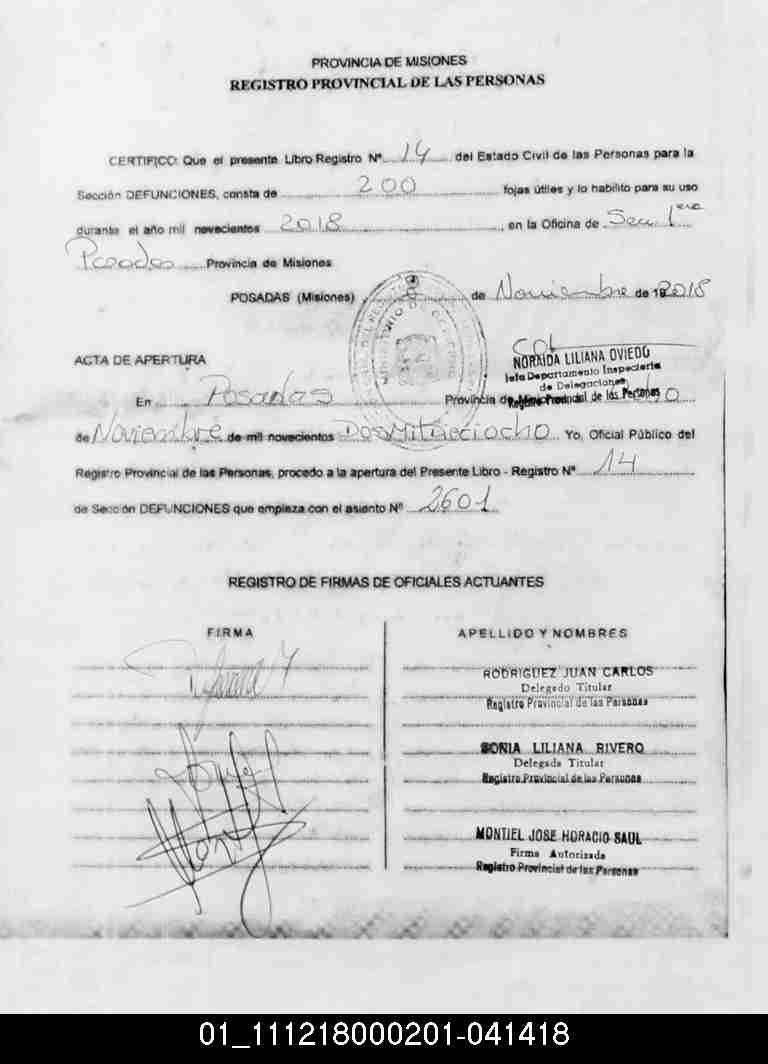 PROVINCIA DE MISIONES
REGISTRO PROVINCIAL DE LAS PERSONAS
CERTIFICO: Que el presente Libro Registro Nº 14 del Estado Civil de las Personas para la
Sección DEFUNCIONES, consta de 200 fojas útiles y lo habilito para su uso
durante el año mil novecientos 2018, en la Oficina de Secc 1era
Posadas Provincia de Misiones
POSADAS (Misiones) 8 de Noviembre de 192018
ACTA DE APERTURA
NORAIDA LILIANA OVIEDO
Jefa Departamento Inspectoria
de Delegaciones
Registro Provincial de las Personas
En Posadas Provincia de Misiones, ocho
de Noviembre de mil novecientos Dos Mil dieciocho Yo, Oficial Público del
Registro Provincial de las Personas, procedo a la apertura del Presente Libro - Registro Nº 14
de Sección DEFUNCIONES que empieza con el asiento Nº 2601
REGISTRO DE FIRMAS DE OFICIALES ACTUANTES
FIRMA
APELLIDO Y NOMBRES
RODRIGUEZ JUAN CARLOS
Delegado Titular
Registro Provincial de las Personas
SONIA LILIANA RIVERO
Delegada Titular
Registro Provincial de las Personas
MONTIEL JOSE HORACIO SAUL
Firma Autorizada
Registro Provincial de las Personas
01_111218000201-041418